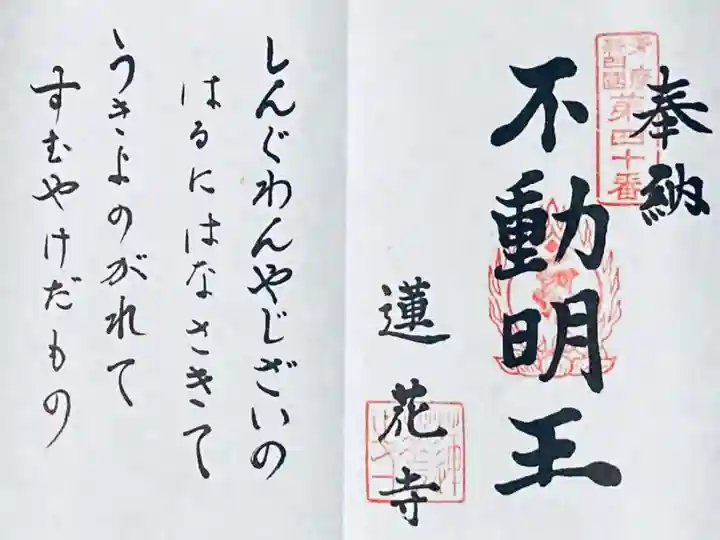 奉納
第四十番
不動明王
蓮花寺
しんぐわんやじざいの
はるにはなさきて
うきよのがれて
すむやけだもの